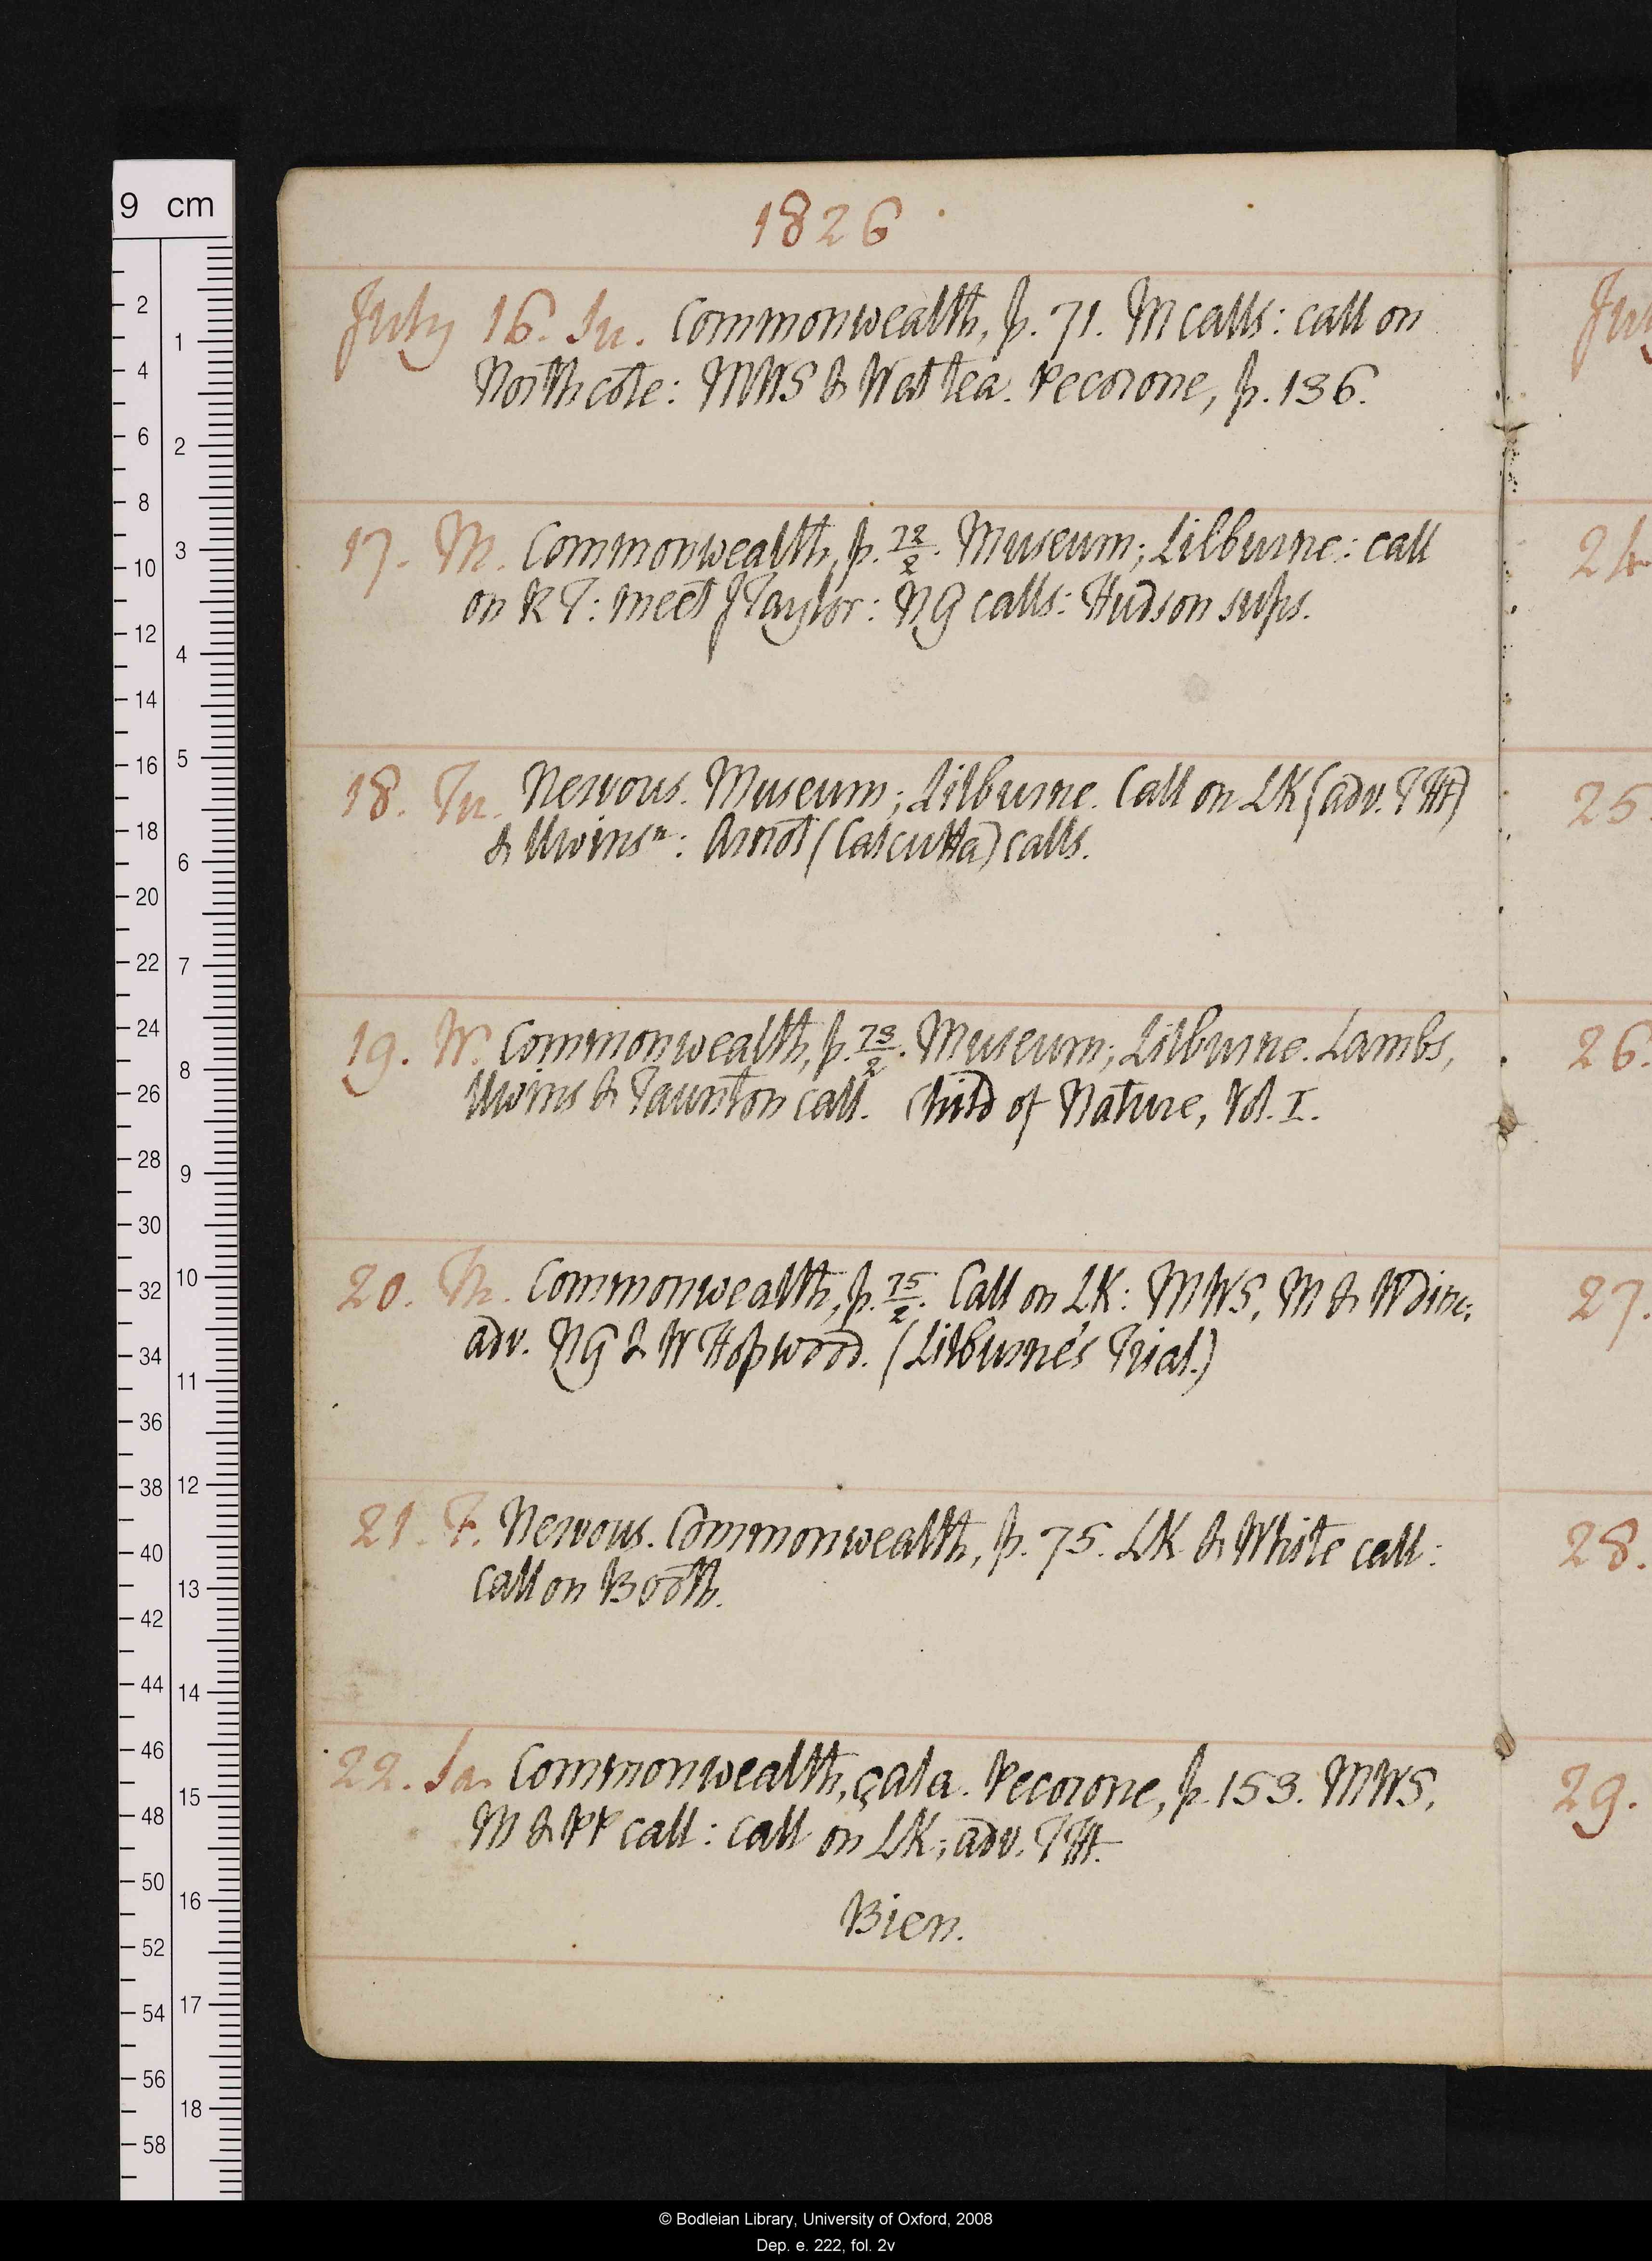 9 cm
1826
July 16. Su. Commonwealth, p. 71. M calls: call on
Northcote: MWS & Wat tea. Pecorone, p. 136.
17. M. Commonwealth, p. 72/2. Museum; Lilburne: call
on R T: meet J Taylor: NG calls: Hudson sups.
18. Tu. Nervous. Museum; Lilburne. Call on LK (adv. THt)
& Uwinsⁿ: Arnot (Calcutta) calls.
19. W. Commonwealth, p. 73/2. Museum; Lilburne. Lambs,
Uwins & Taunton call. Child of Nature, Vol. I.
20. Th. Commonwealth, p. 75/2. Call on LK: MWS, M & W dine;
adv. NG & W Hopwood. (Lilburne's Trial.)
21. F. Nervous. Commonwealth, p. 75. LK & White call:
call on Booth.
22. Sa. Commonwealth, çala. Pecorone, p. 153. MWS,
M & PP call: call on LK; adv. THt.
Bien.
July
24
25.
26.
27.
28.
29.
2
4
6
8
10
12
14
16
18
20
22
24
26
28
30
32
34
36
38
40
42
44
46
48
50
52
54
56
58
1
2
3
4
5
6
7
8
9
10
11
12
13
14
15
16
17
18
© Bodleian Library, University of Oxford, 2008
Dep. e. 222, fol. 2v